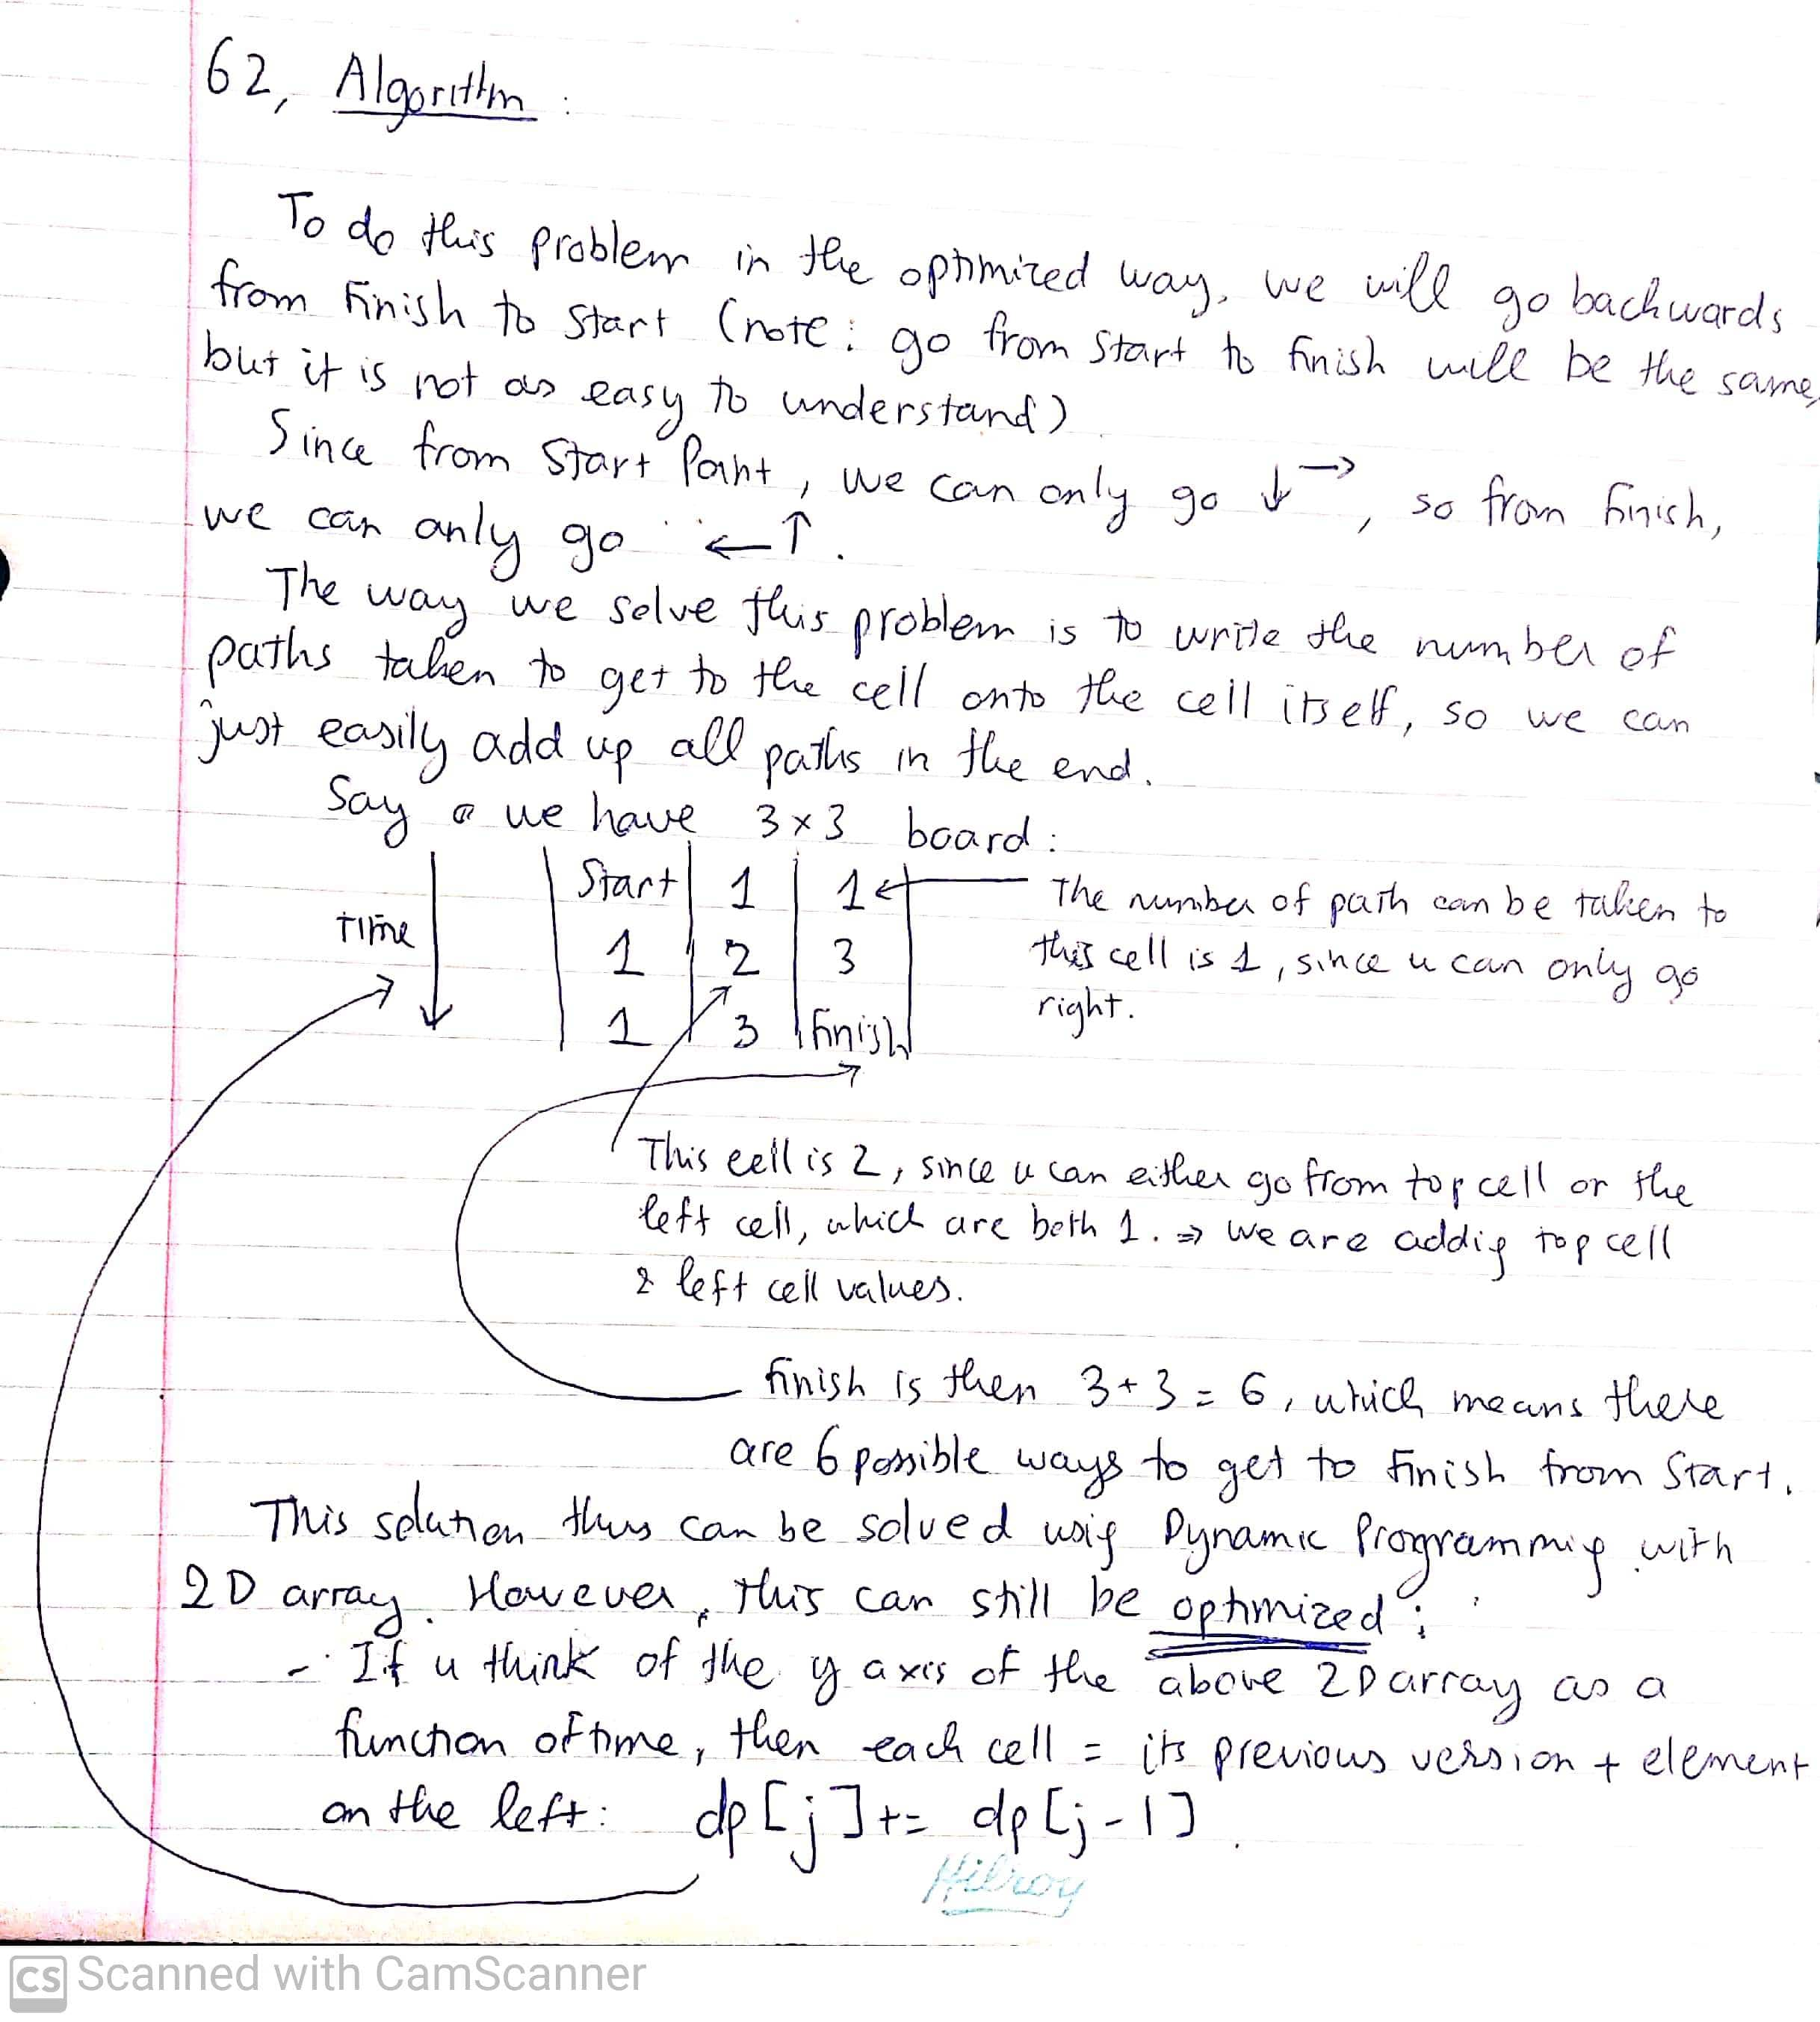 62, Algorithm :
To do this problem in the optimized way, we will go backwards
from Finish to Start (note: go from Start to finish will be the same,
but it is not as easy to understand)
Since from Start Point, we can only go ↓ →, so from finish,
we can only go ← ↑.
The way we solve this problem is to write the number of
paths taken to get to the cell onto the cell itself, so we can
just easily add up all paths in the end.
Say we have 3x3 board:
Start 1 1
The number of path can be taken to
Time
1 2 3
this cell is 1, since u can only go
right.
1 3 finish
This cell is 2, since u can either go from top cell or the
left cell, which are both 1. ⇒ we are addig top cell
& left cell values.
finish is then 3+3=6, which means there
are 6 possible ways to get to Finish from Start.
This solution thus can be solved usig Dynamic Programmig with
2D array. However, this can still be optimized:
- If u think of the y axis of the above 2D array as a
function of time, then each cell = its previous version + element
on the left: dp[j] += dp[j-1].
Hilroy
CS Scanned with CamScanner